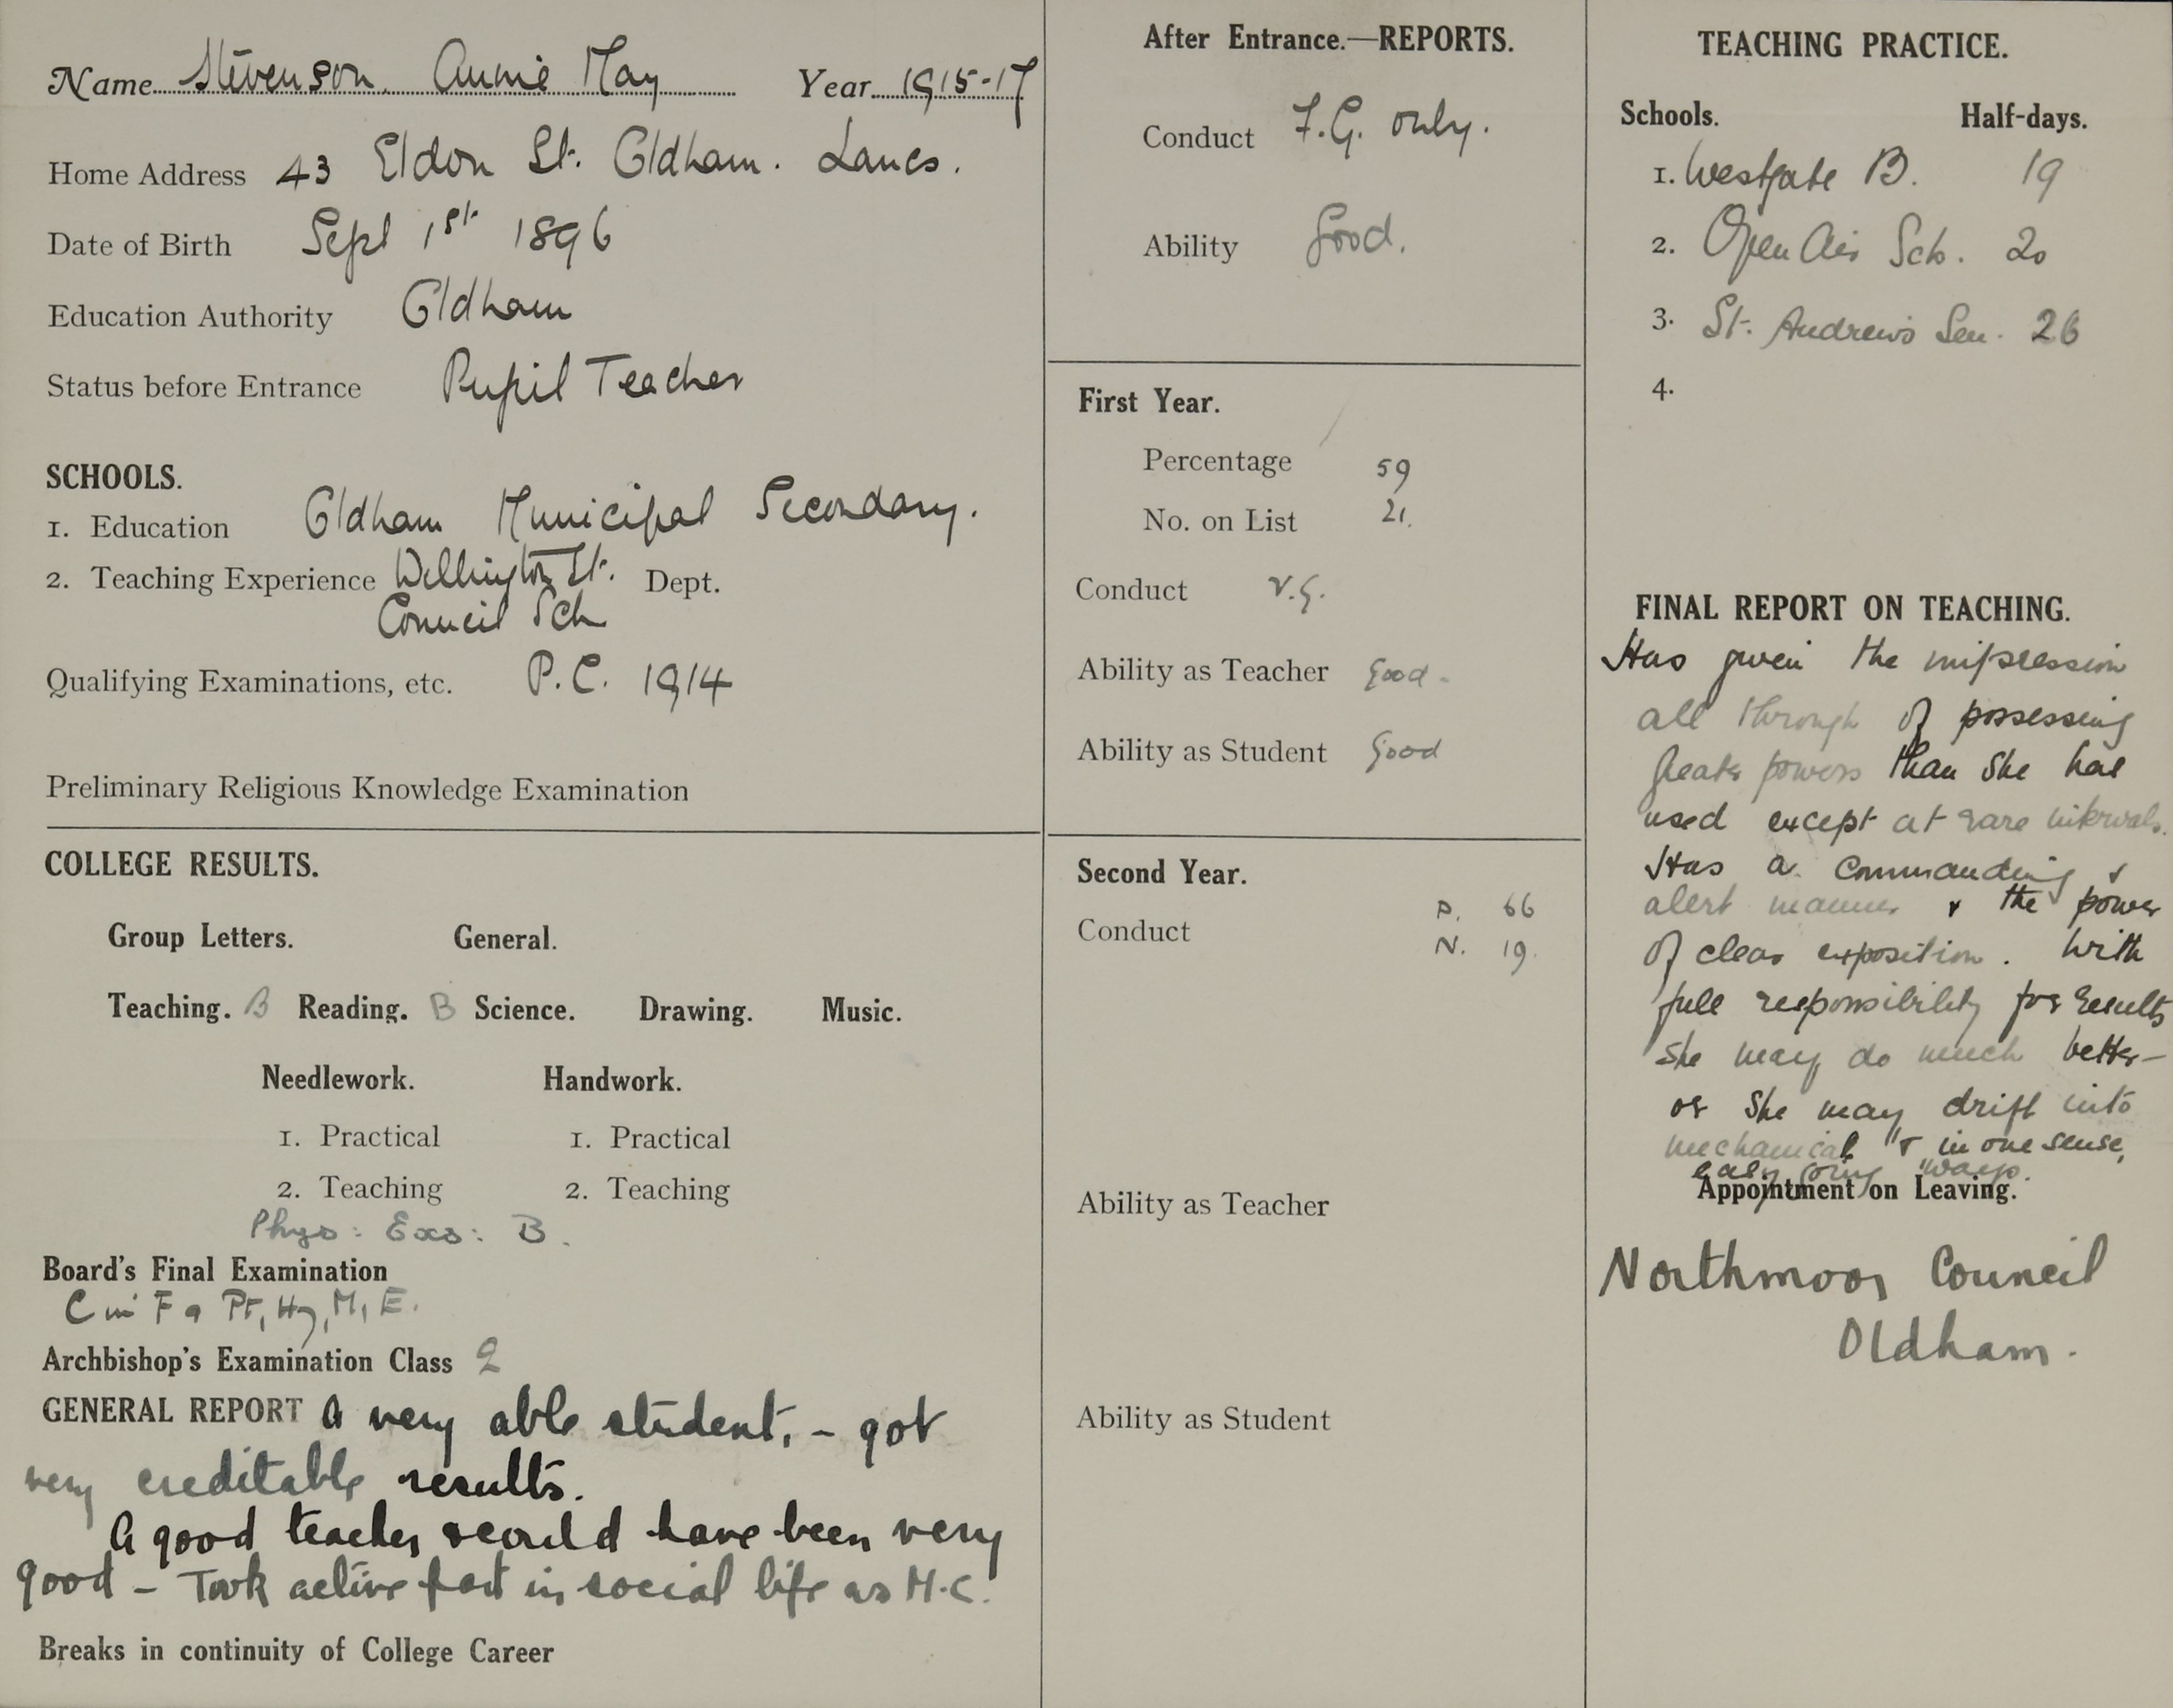 Name Stevenson. Annie May Year 1915-17
Home Address 43 Eldon St. Oldham. Lancs.
Date of Birth Sept 1st 1896
Education Authority Oldham
Status before Entrance Pupil Teacher
SCHOOLS.
1. Education Oldham Municipal Secondary.
2. Teaching Experience Wellington St. Dept.
Council Sch
Qualifying Examinations, etc. P.C. 1914
Preliminary Religious Knowledge Examination
COLLEGE RESULTS.
Group Letters. General.
Teaching. B Reading. B Science. Drawing. Music.
Needlework. Handwork.
1. Practical 1. Practical
2. Teaching 2. Teaching
Phys: Exs: B.
Board's Final Examination
C in F a Pt, Hy, M, E.
Archbishop's Examination Class 2
GENERAL REPORT A very able student, - got
very creditable results.
A good teacher would have been very
good - Took active part in social life as M.C.
Breaks in continuity of College Career
After Entrance.—REPORTS.
Conduct F.G. only.
Ability Good.
First Year.
Percentage 59
No. on List 21.
Conduct V.G.
Ability as Teacher Good.
Ability as Student Good
Second Year.
P. 66
Conduct
N. 19.
Ability as Teacher
Ability as Student
TEACHING PRACTICE.
Schools. Half-days.
1. Westgate B. 19
2. Open Air Sch. 20
3. St. Andrews Sen. 26
4.
FINAL REPORT ON TEACHING.
Has given the impression
all through of possessing
greater powers than she has
used except at rare intervals.
Has a commanding &
alert manner & the power
of clear exposition. With
full responsibility for results
she may do much better—
or she may drift into
mechanical "& in one sense,
easy going" ways.
Appointment on Leaving.
Northmoor Council
Oldham.